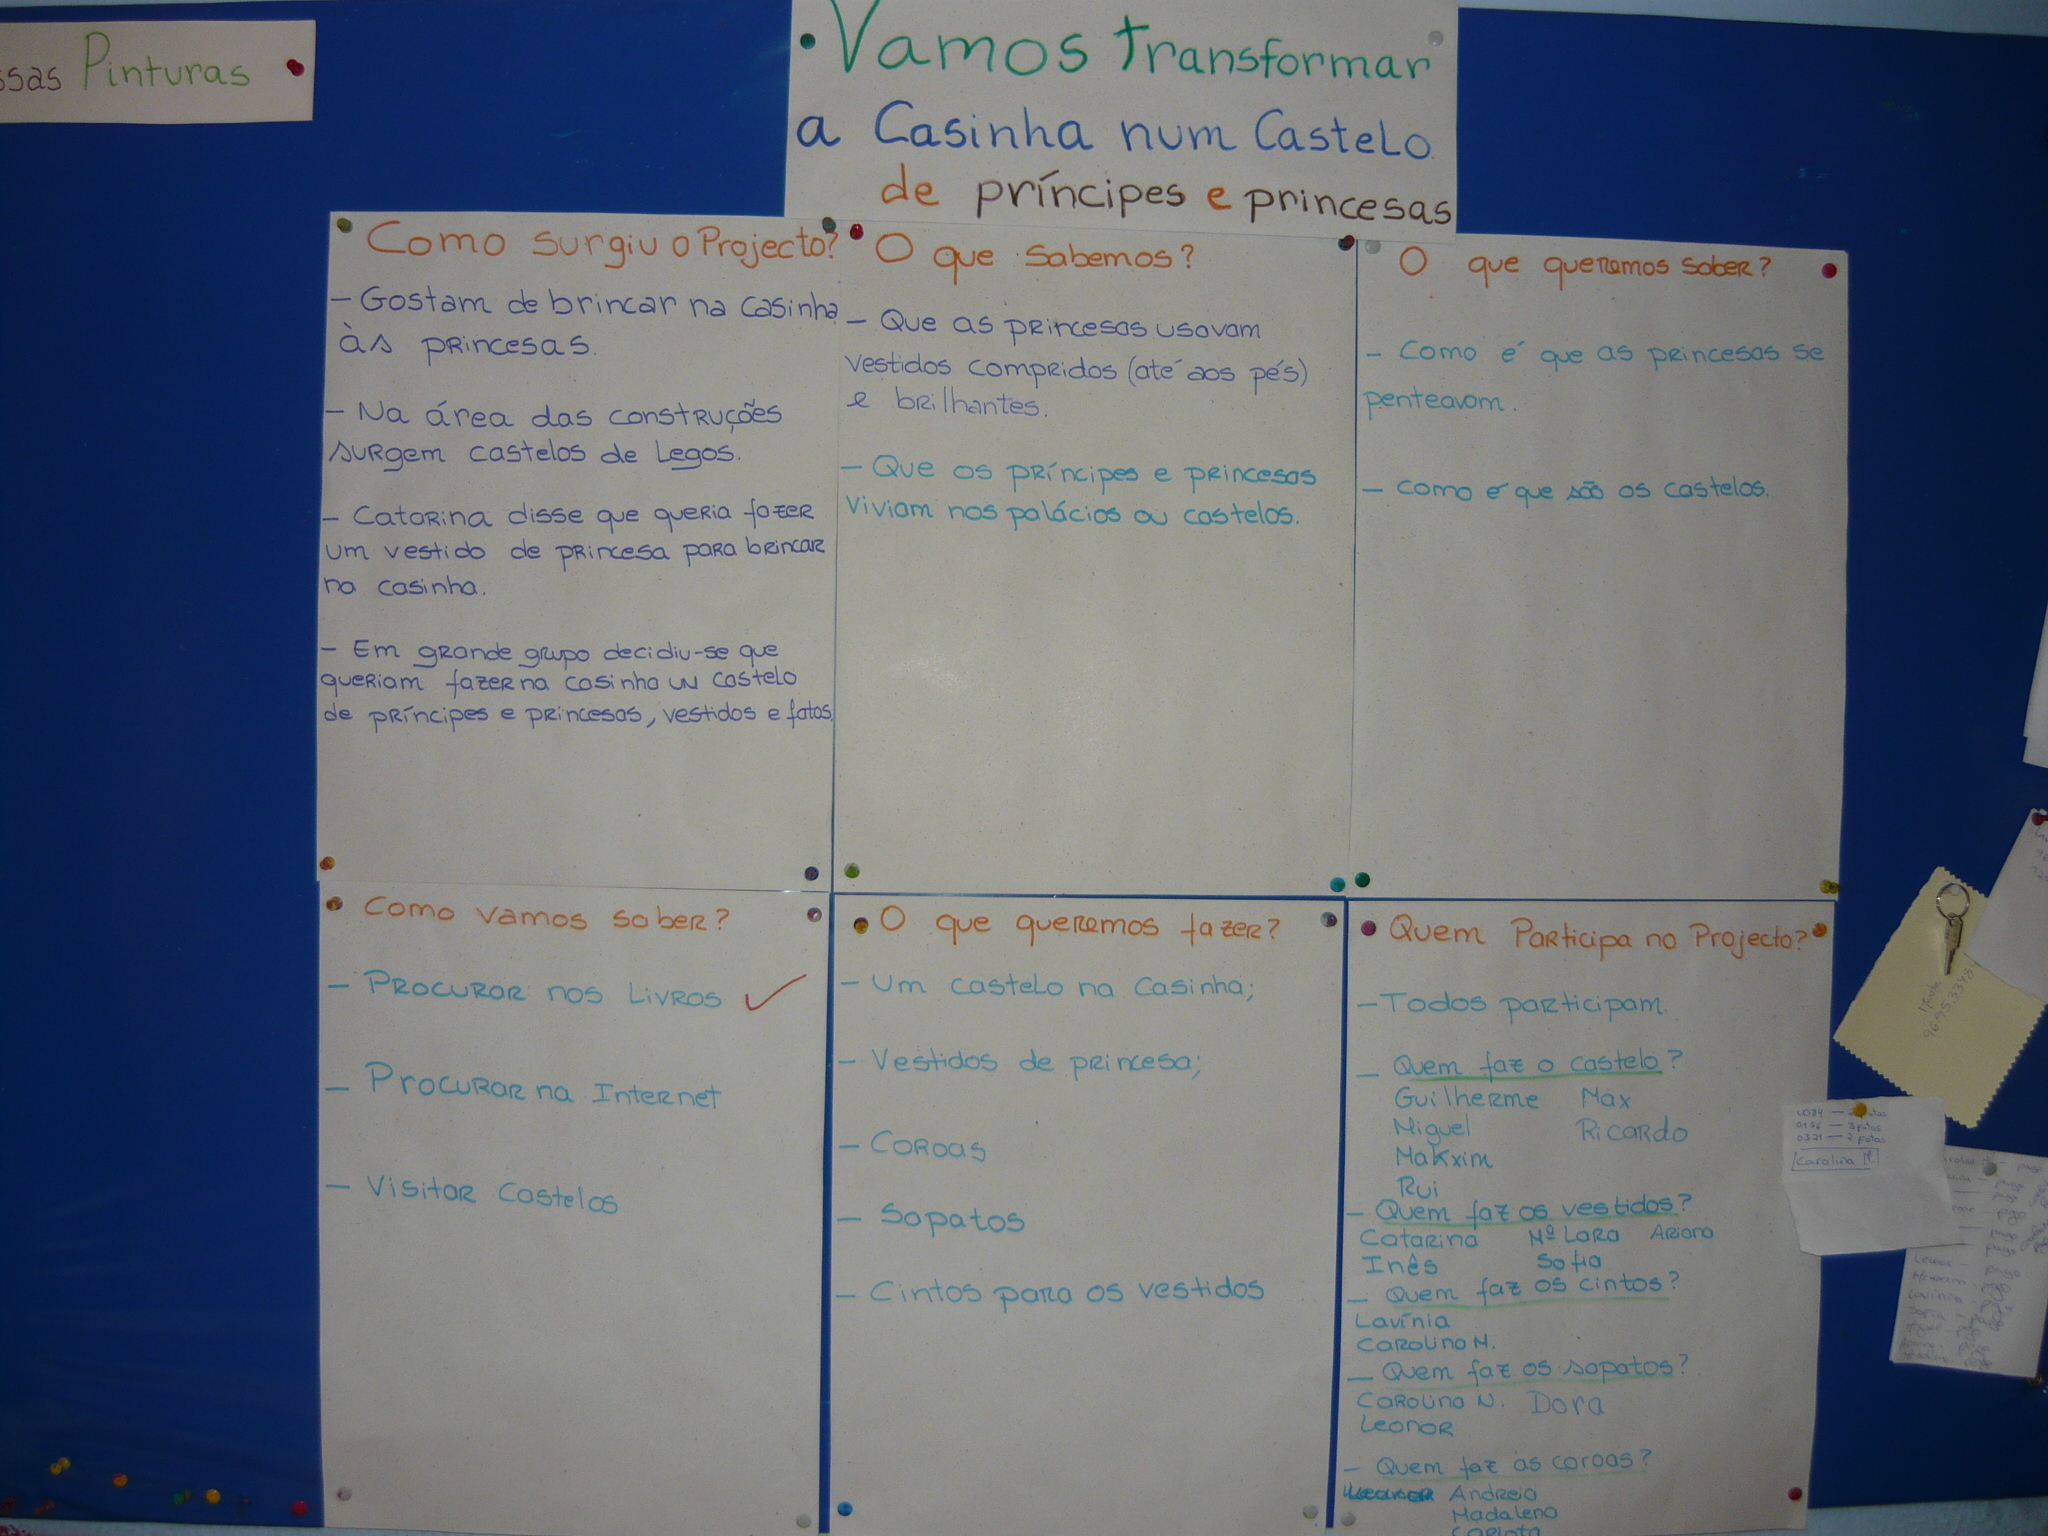 ssas Pinturas
Vamos transformar
a Casinha num Castelo
de príncipes e princesas
Como surgiu o Projecto?
- Gostam de brincar na casinha
às princesas.
- Na área das construções
surgem castelos de Legos.
- Catarina disse que queria fazer
um vestido de princesa para brincar
na casinha.
- Em grande grupo decidiu-se que
queriam fazer na casinha un castelo
de príncipes e princesas, vestidos e fatos.
O que sabemos?
- Que as princesas usavam
vestidos compridos (até aos pés)
e brilhantes.
- Que os príncipes e princesas
viviam nos palácios ou castelos.
O que queremos saber?
- Como é que as princesas se
penteavam.
- Como é que são os castelos.
Como vamos saber?
- Procurar nos Livros ✓
- Procurar na Internet
- Visitar castelos
O que queremos fazer?
- Um castelo na casinha;
- Vestidos de princesa;
- Coroas
- Sapatos
- Cintos para os vestidos
Quem Participa no Projecto?
- Todos participam.
- Quem faz o castelo?
Guilherme Max
Miguel Ricardo
Makxim
Rui
- Quem faz os vestidos?
Catarina Mª Lara Ariana
Inês Sofia
- Quem faz os cintos?
Lavínia
Carolina M.
- Quem faz os sapatos?
Carolina N. Dora
Leonor
- Quem faz as coroas?
Andreia
Madalena
Carlota
Carolina M.